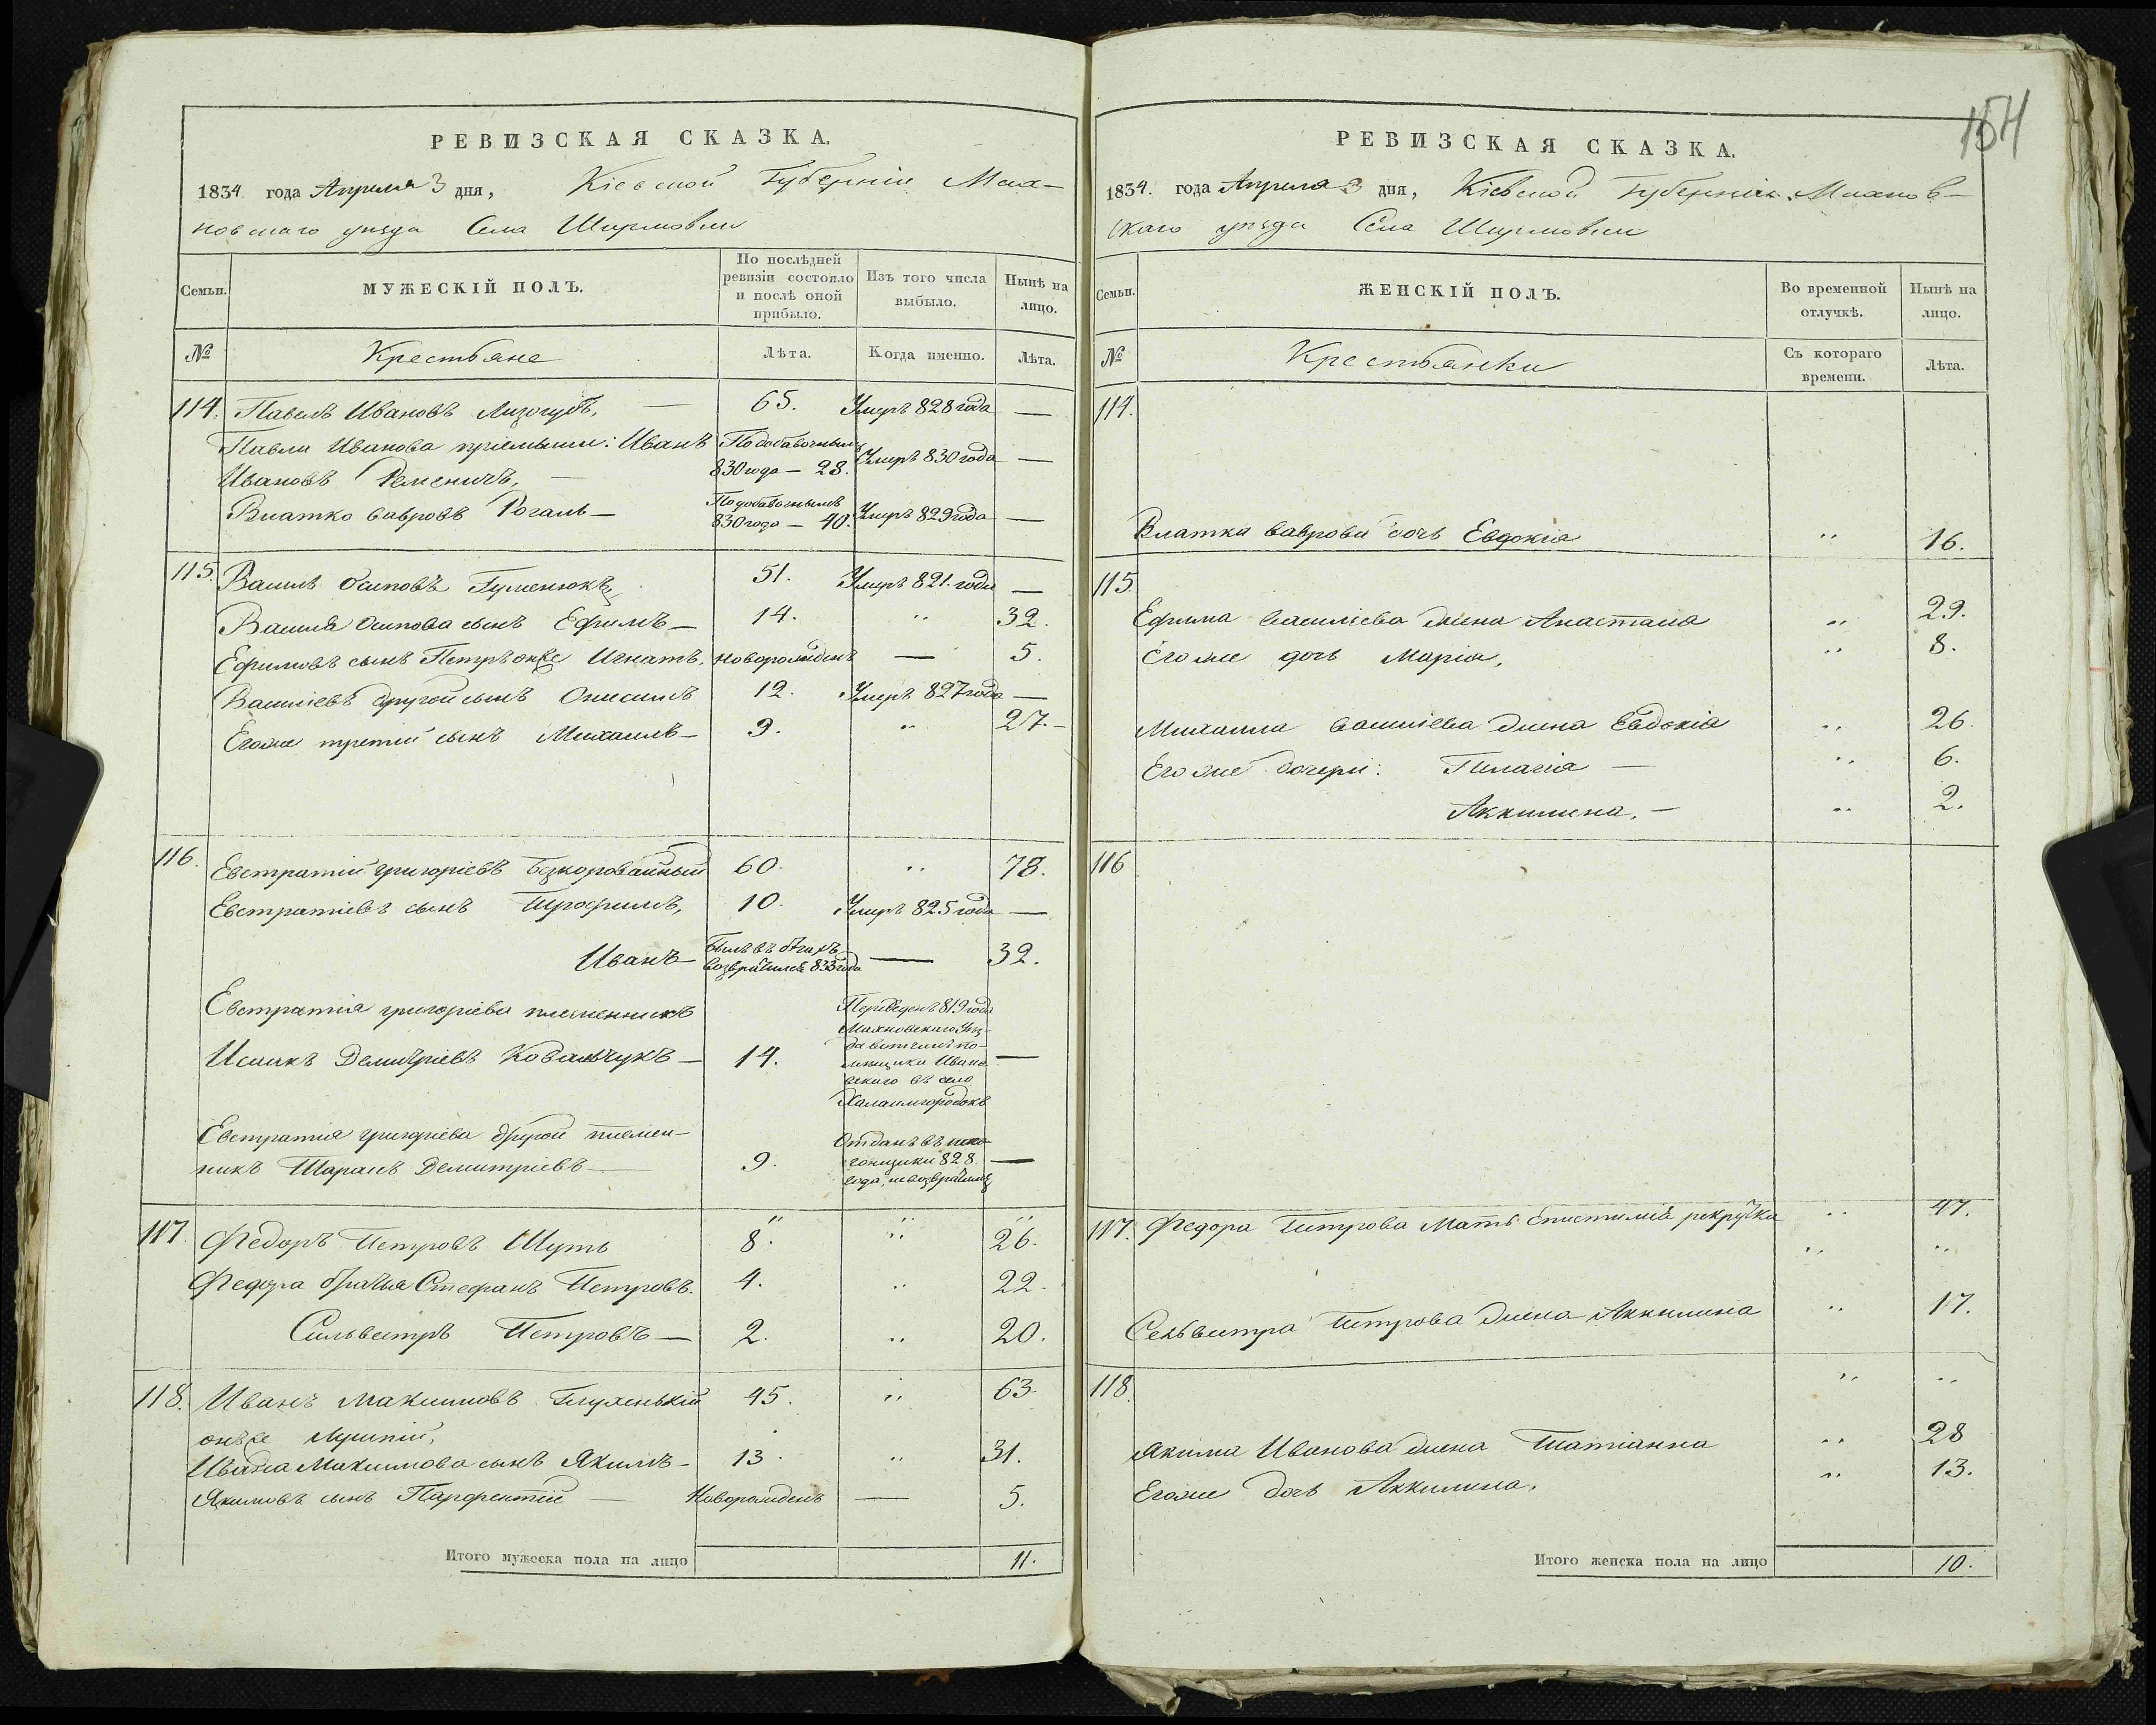 РЕВИЗСКАЯ СКАЗКА.
1834 года Апреля 3 дня, Кіевской Губерніи Мах-
новскаго уѣзда Села Ширмовки
Семьи.
МУЖЕСКІЙ ПОЛЪ.
По послѣдней
ревизіи состояло
и послѣ оной
прибыло.
Изъ того числа
выбыло.
Нынѣ на
лицо.
№
Крестьяне
Лѣта.
Когда именно.
Лѣта.
114. Павелъ Ивановъ Лизогубъ, — 65. Умеръ 828 года —
Павла Иванова пріемыши: Иванъ По добавочнымъ
Ивановъ 830 года — 28. Умеръ 830 года —
Власко Вавровъ Рогаль — По добавочнымъ
830 года — 40. Умеръ 829 года —
115. Василь Осиповъ Гуменюкъ 51. Умеръ 821. года —
Василя Осипова сынъ Ефимъ — 14. „ 32.
Ефимовъ сынъ Петръ онже Игнатъ, новорожденъ — 5.
Василіевъ другой сынъ Онисимъ 12. Умеръ 827 года —
Егоже третій сынъ Михаилъ — 9. „ 27. —
116. Евстратій Григоріевъ Безкоровайный 60. „ 78.
Евстратіевъ сынъ Трофимъ, 10. Умеръ 825 года —
Иванъ — былъ въ бѣгахъ
возвратился 833 года — 32.
Евстратія Григоріева племенникъ
Исаакъ Демитріевъ Ковальчукъ — 14.
Переведенъ 819 года
Махновскаго Уѣз-
да вотчины по-
мѣщика Ивано-
вскаго въ село
Халаимгородокъ —
Евстратія Григоріева другой племен-
никъ Тарасъ Демитріевъ — 9.
Отданъ въ
828 —
года, невозвратил
117. Федоръ Петровъ Шутъ 8. „ 26.
Федора братья Стефанъ Петровъ. 4. „ 22.
Сильвестръ Петровъ — 2. „ 20.
118. Иванъ Максимовъ Глухенькій 45. „ 63.
онже Лупій,
Ивана Максимова сынъ Якимъ — 13. „ 31.
Якимовъ сынъ Парфентій — Новорожденъ — 5.
Итого мужеска пола на лицо 11.
154
РЕВИЗСКАЯ СКАЗКА.
1834. года Апреля 3 дня, Кіевской Губерніи Махнов-
скаго уѣзда Села Ширмовки
Семьи.
ЖЕНСКІЙ ПОЛЪ.
Во временной
отлучкѣ.
Нынѣ на
лицо.
№
Крестьянки
Съ котораго
времени.
Лѣта.
114.
Власка Ваврова дочь Евдокія „ 16.
115.
Ефима Василіева жена Анастасія „ 29.
Егоже дочь Марія, „ 8.
Михаила Василіева жена Евдокія „ 26.
Егоже дочери: Пелагія — „ 6.
Аккилина, — „ 2.
116
117. Федора Петрова Мать Епистимія рекрутка „ 47.
„ „
Сельвестра Петрова жена Аккилина „ 17.
118. „ „
Якима Иванова жена Татіанна „ 28
Егоже дочь Аккилина, „ 13.
Итого женска пола на лицо 10.